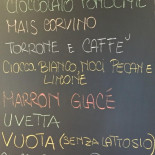 CIOCCOLATO FONDENTE
MAIS CORVINO
TORRONE E CAFFE'
CIOCC. BIANCO, NOCI PECAN E
LIMONE
MARRON GLACÉ
UVETTA
VUOTA (SENZA LATTOSIO)